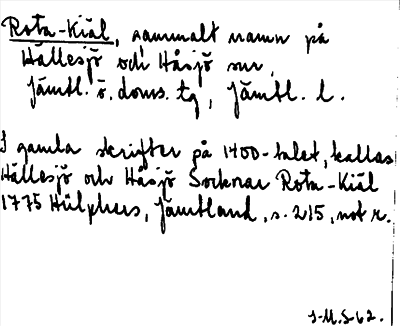 Rota-Kiäl, gammalt namn på
Hällesjö och Håsjö snr,
Jämtl. ö. doms. tg, Jämtl. l.
I gamla skrifter på 1400-talet, kallas
Hällesjö och Håsjö Socknar Rota-Kiäl
1775 Hülphers, Jämtland, s. 215, not r.
J-M.S-62.